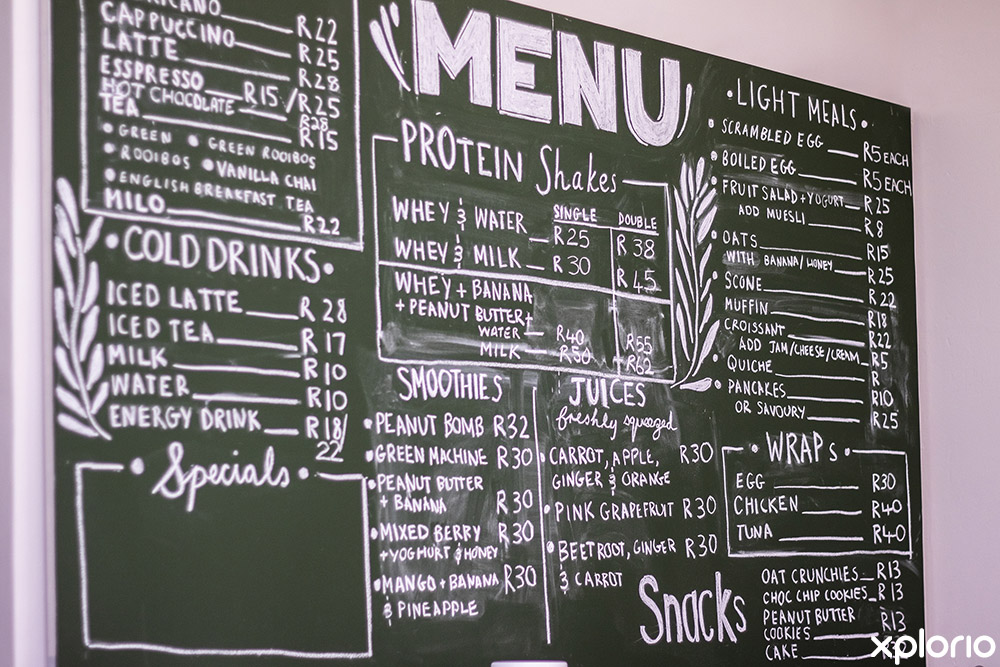 R22
CAPPUCCINO R25
LATTE R28
ESSPRESSO R15/R25
HOT CHOCOLATE R28
TEA R15
• GREEN • GREEN ROOIBOS
• ROOIBOS • VANILLA CHAI
• ENGLISH BREAKFAST TEA
MILO R22
• COLD DRINKS •
ICED LATTE R28
ICED TEA R17
MILK R10
WATER R10
ENERGY DRINK R18/
22
• Specials •
MENU
PROTEIN Shakes
SINGLE DOUBLE
WHEY & WATER R25 R38
WHEY & MILK R30 R45
WHEY + BANANA
+ PEANUT BUTTER +
WATER R40 R55
MILK R50 R62
SMOOTHIES
• PEANUT BOMB R32
• GREEN MACHINE R30
• PEANUT BUTTER
+ BANANA R30
• MIXED BERRY R30
+ YOGHURT & HONEY
• MANGO + BANANA R30
& PINEAPPLE
JUICES
freshly squeezed
• CARROT, APPLE, R30
GINGER & ORANGE
• PINK GRAPEFRUIT R30
• BEETROOT, GINGER R30
& CARROT
• LIGHT MEALS •
• SCRAMBLED EGG R5 EACH
• BOILED EGG R5 EACH
• FRUIT SALAD + YOGURT R25
ADD MUESLI R8
• OATS R15
WITH BANANA/HONEY R25
• SCONE R22
MUFFIN R18
CROISSANT R22
ADD JAM/CHEESE/CREAM R5
• QUICHE R
• PANCAKES R10
OR SAVOURY R25
• WRAPS •
EGG R30
CHICKEN R40
TUNA R40
Snacks
OAT CRUNCHIES R13
CHOC CHIP COOKIES R13
PEANUT BUTTER R13
COOKIES
CAKE
xplorio